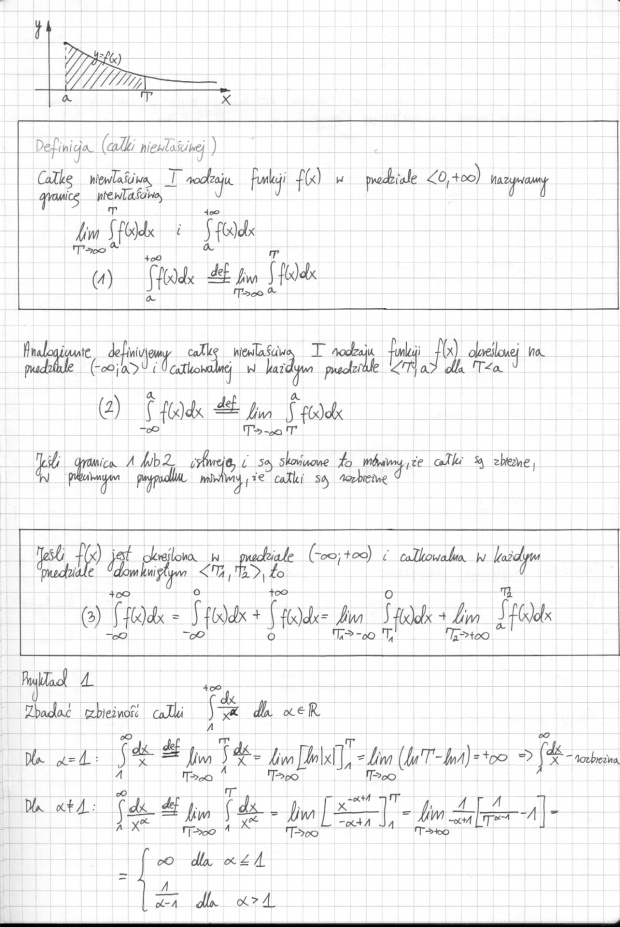 y
y=f(x)
a T x
Definicja (całki niewłaściwej)
Całkę niewłaściwą I rodzaju funkcji f(x) w przedziale <0,+∞) nazywamy
granicę niewłaściwą
lim_{T→∞} ∫_a^T f(x)dx i ∫_a^{+∞} f(x)dx
(1) ∫_a^{+∞} f(x)dx =def= lim_{T→∞} ∫_a^T f(x)dx
Analogicznie definiujemy całkę niewłaściwą I rodzaju funkcji f(x) określonej na
przedziale (-∞;a> i całkowalnej w każdym przedziale <T;a> dla T<a
(2) ∫_{-∞}^a f(x)dx =def= lim_{T→-∞} ∫_T^a f(x)dx
Jeśli granica 1 lub 2 istnieje i są skończone to mówimy, że całki są zbieżne,
w przeciwnym przypadku mówimy, że całki są rozbieżne
Jeśli f(x) jest określona w przedziale (-∞;+∞) i całkowalna w każdym
przedziale domkniętym <T₁,T₂>, to
(3) ∫_{-∞}^{+∞} f(x)dx = ∫_{-∞}^0 f(x)dx + ∫_0^{+∞} f(x)dx = lim_{T₁→-∞} ∫_{T₁}^0 f(x)dx + lim_{T₂→+∞} ∫_a^{T₂} f(x)dx
Przykład 1
Zbadać zbieżność całki ∫_1^{+∞} dx/x^α dla α∈ℝ
Dla α=1: ∫_1^∞ dx/x =def= lim_{T→∞} ∫_1^T dx/x = lim_{T→∞} [ln|x|]_1^T = lim_{T→∞} (lnT-ln1)=+∞ => ∫_1^∞ dx/x - rozbieżna
Dla α≠1: ∫_1^∞ dx/x^α =def= lim_{T→∞} ∫_1^T dx/x^α = lim_{T→∞} [x^{-α+1}/(-α+1)]_1^T = lim_{T→+∞} 1/(-α+1) [1/T^{α-1} - 1] =
= { ∞ dla α≤1
1/(α-1) dla α>1